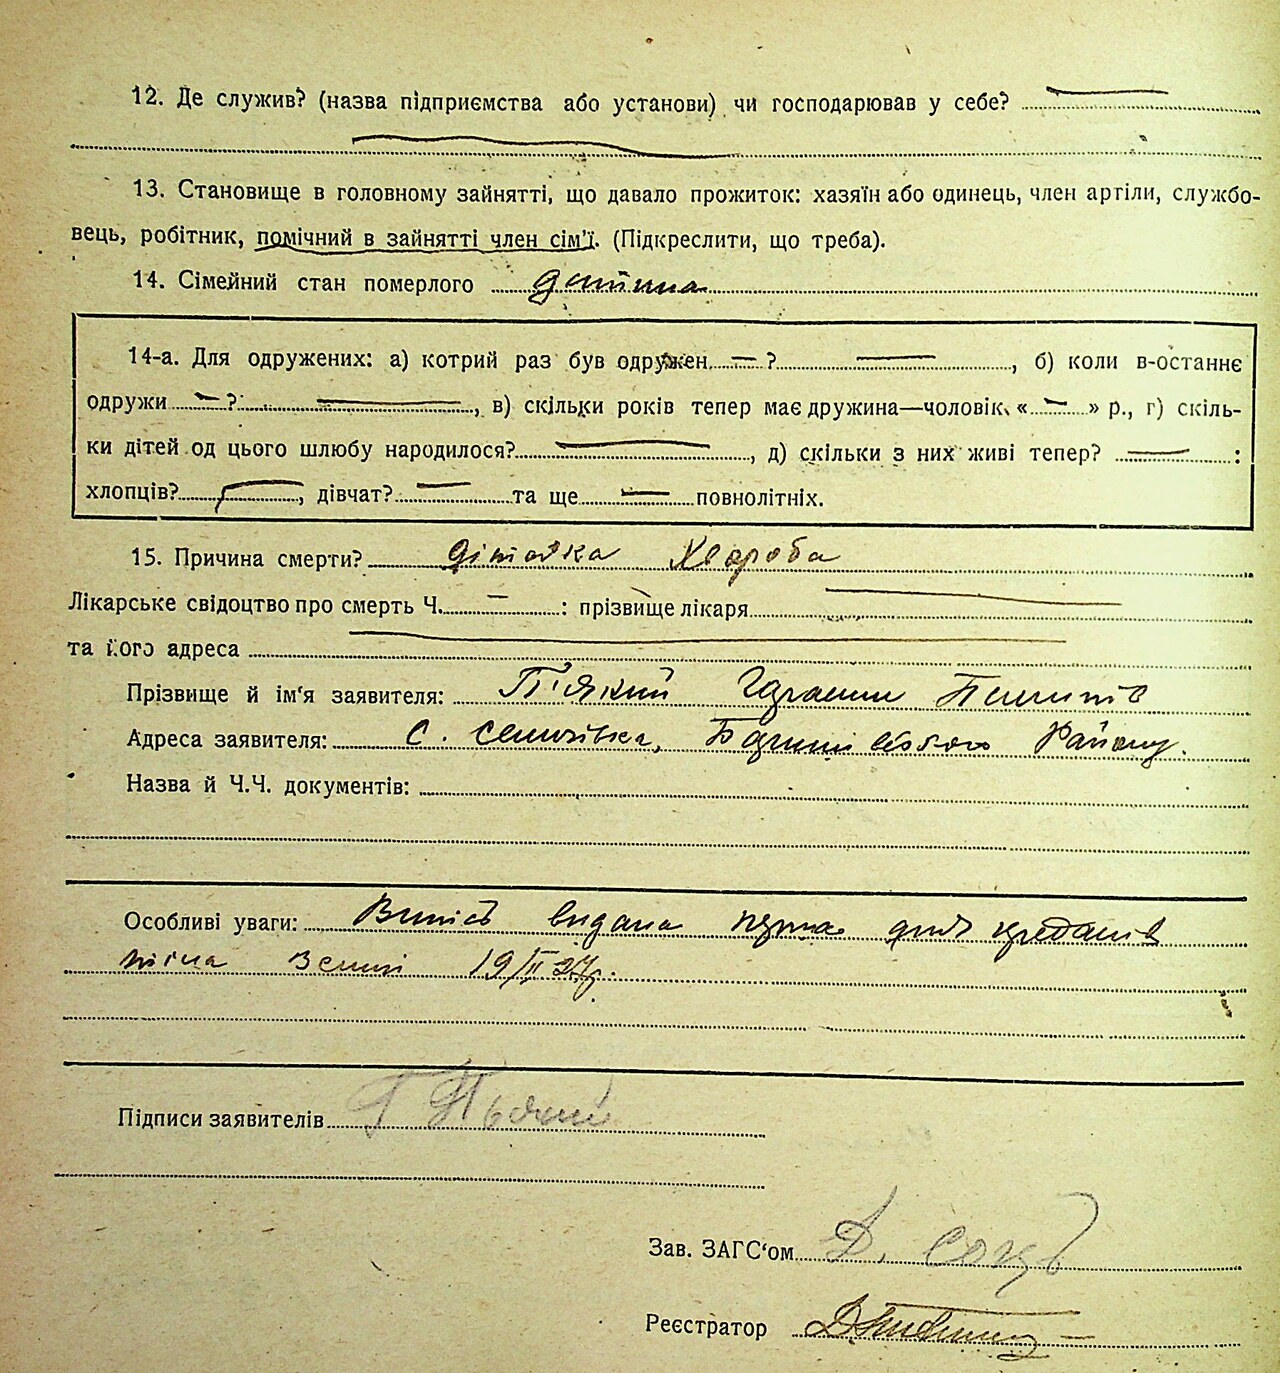 12. Де служив? (назва підприємства або установи) чи господарював у себе?
13. Становище в головному зайнятті, що давало прожиток: хазяїн або одинець, член артіли, службо-
вець, робітник, помічний в зайнятті член сім'ї. (Підкреслити, що треба).
14. Сімейний стан померлого дитина
14-а. Для одружених: а) котрий раз був одружен — ? —, б) коли в-останнє
одружи — ? —, в) скільки років тепер має дружина—чоловік, « — » р., г) скіль-
ки дітей од цього шлюбу народилося? —, д) скільки з них живі тепер? — :
хлопців? —, дівчат? — та ще — повнолітніх.
15. Причина смерти? діточка Хвороба
Лікарське свідоцтво про смерть Ч. — : прізвище лікаря —
та його адреса —
Прізвище й ім'я заявителя:
Адреса заявителя: С. Району.
Назва й Ч.Ч. документів:
Особливі уваги: видана
19/II 27р.
Підписи заявителів
Зав. ЗАГС'ом Д.
Реєстратор